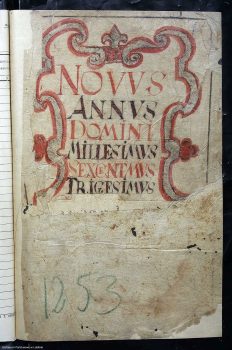 NOVVS
ANNVS
DOMINI
MILLESIMVS
SEXCENTMVS
TRIGESIMVS
1253